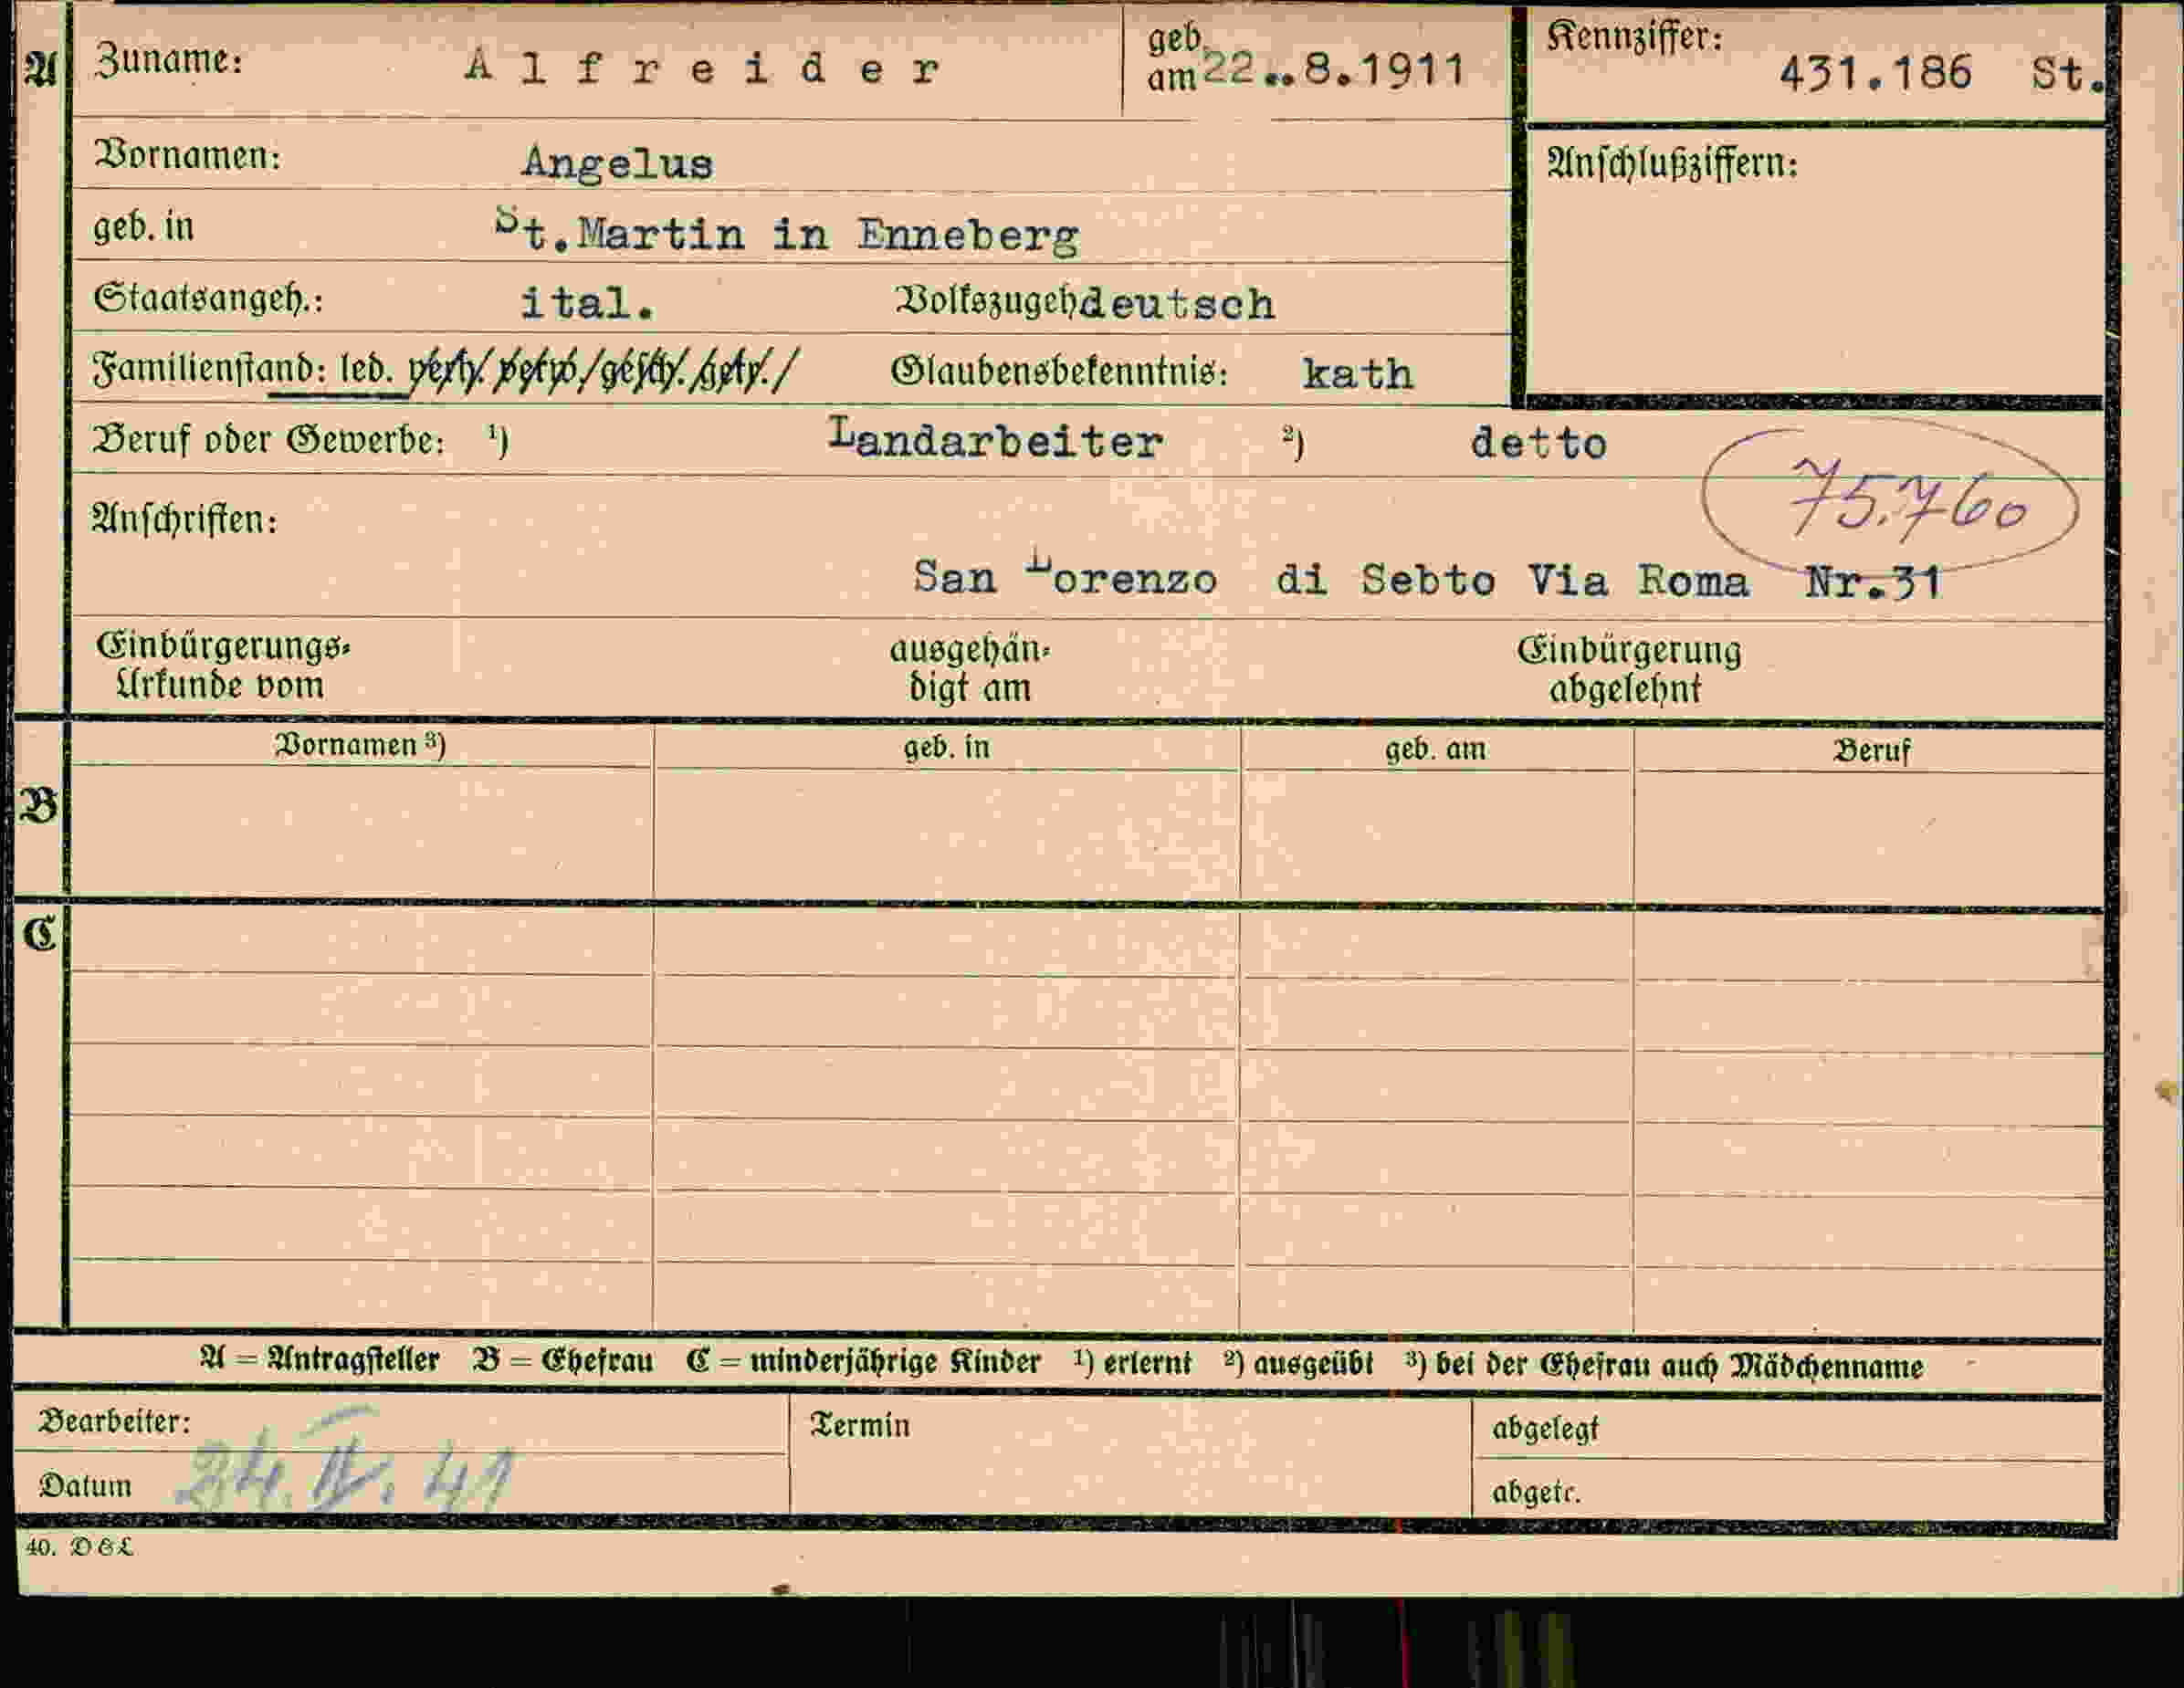 A Zuname: Alfreider geb. am 22..8.1911 Kennziffer: 431.186 St.
Vornamen: Angelus Anschlußziffern:
geb. in St.Martin in Enneberg
Staatsangeh.: ital. Volkszugeh deutsch
Familienstand: led. verh. verw. gesch. getr. Glaubensbekenntnis: kath
Beruf oder Gewerbe: ¹) Landarbeiter ²) detto
75.760
Anschriften:
San Lorenzo di Sebto Via Roma Nr.31
Einbürgerungs- ausgehän- Einbürgerung
Urkunde vom digt am abgelehnt
Vornamen ³) geb. in geb. am Beruf
B
C
A = Antragsteller B = Ehefrau C = minderjährige Kinder ¹) erlernt ²) ausgeübt ³) bei der Ehefrau auch Mädchenname
Bearbeiter: Termin abgelegt
Datum 24. II. 41 abgetr.
40. DEL